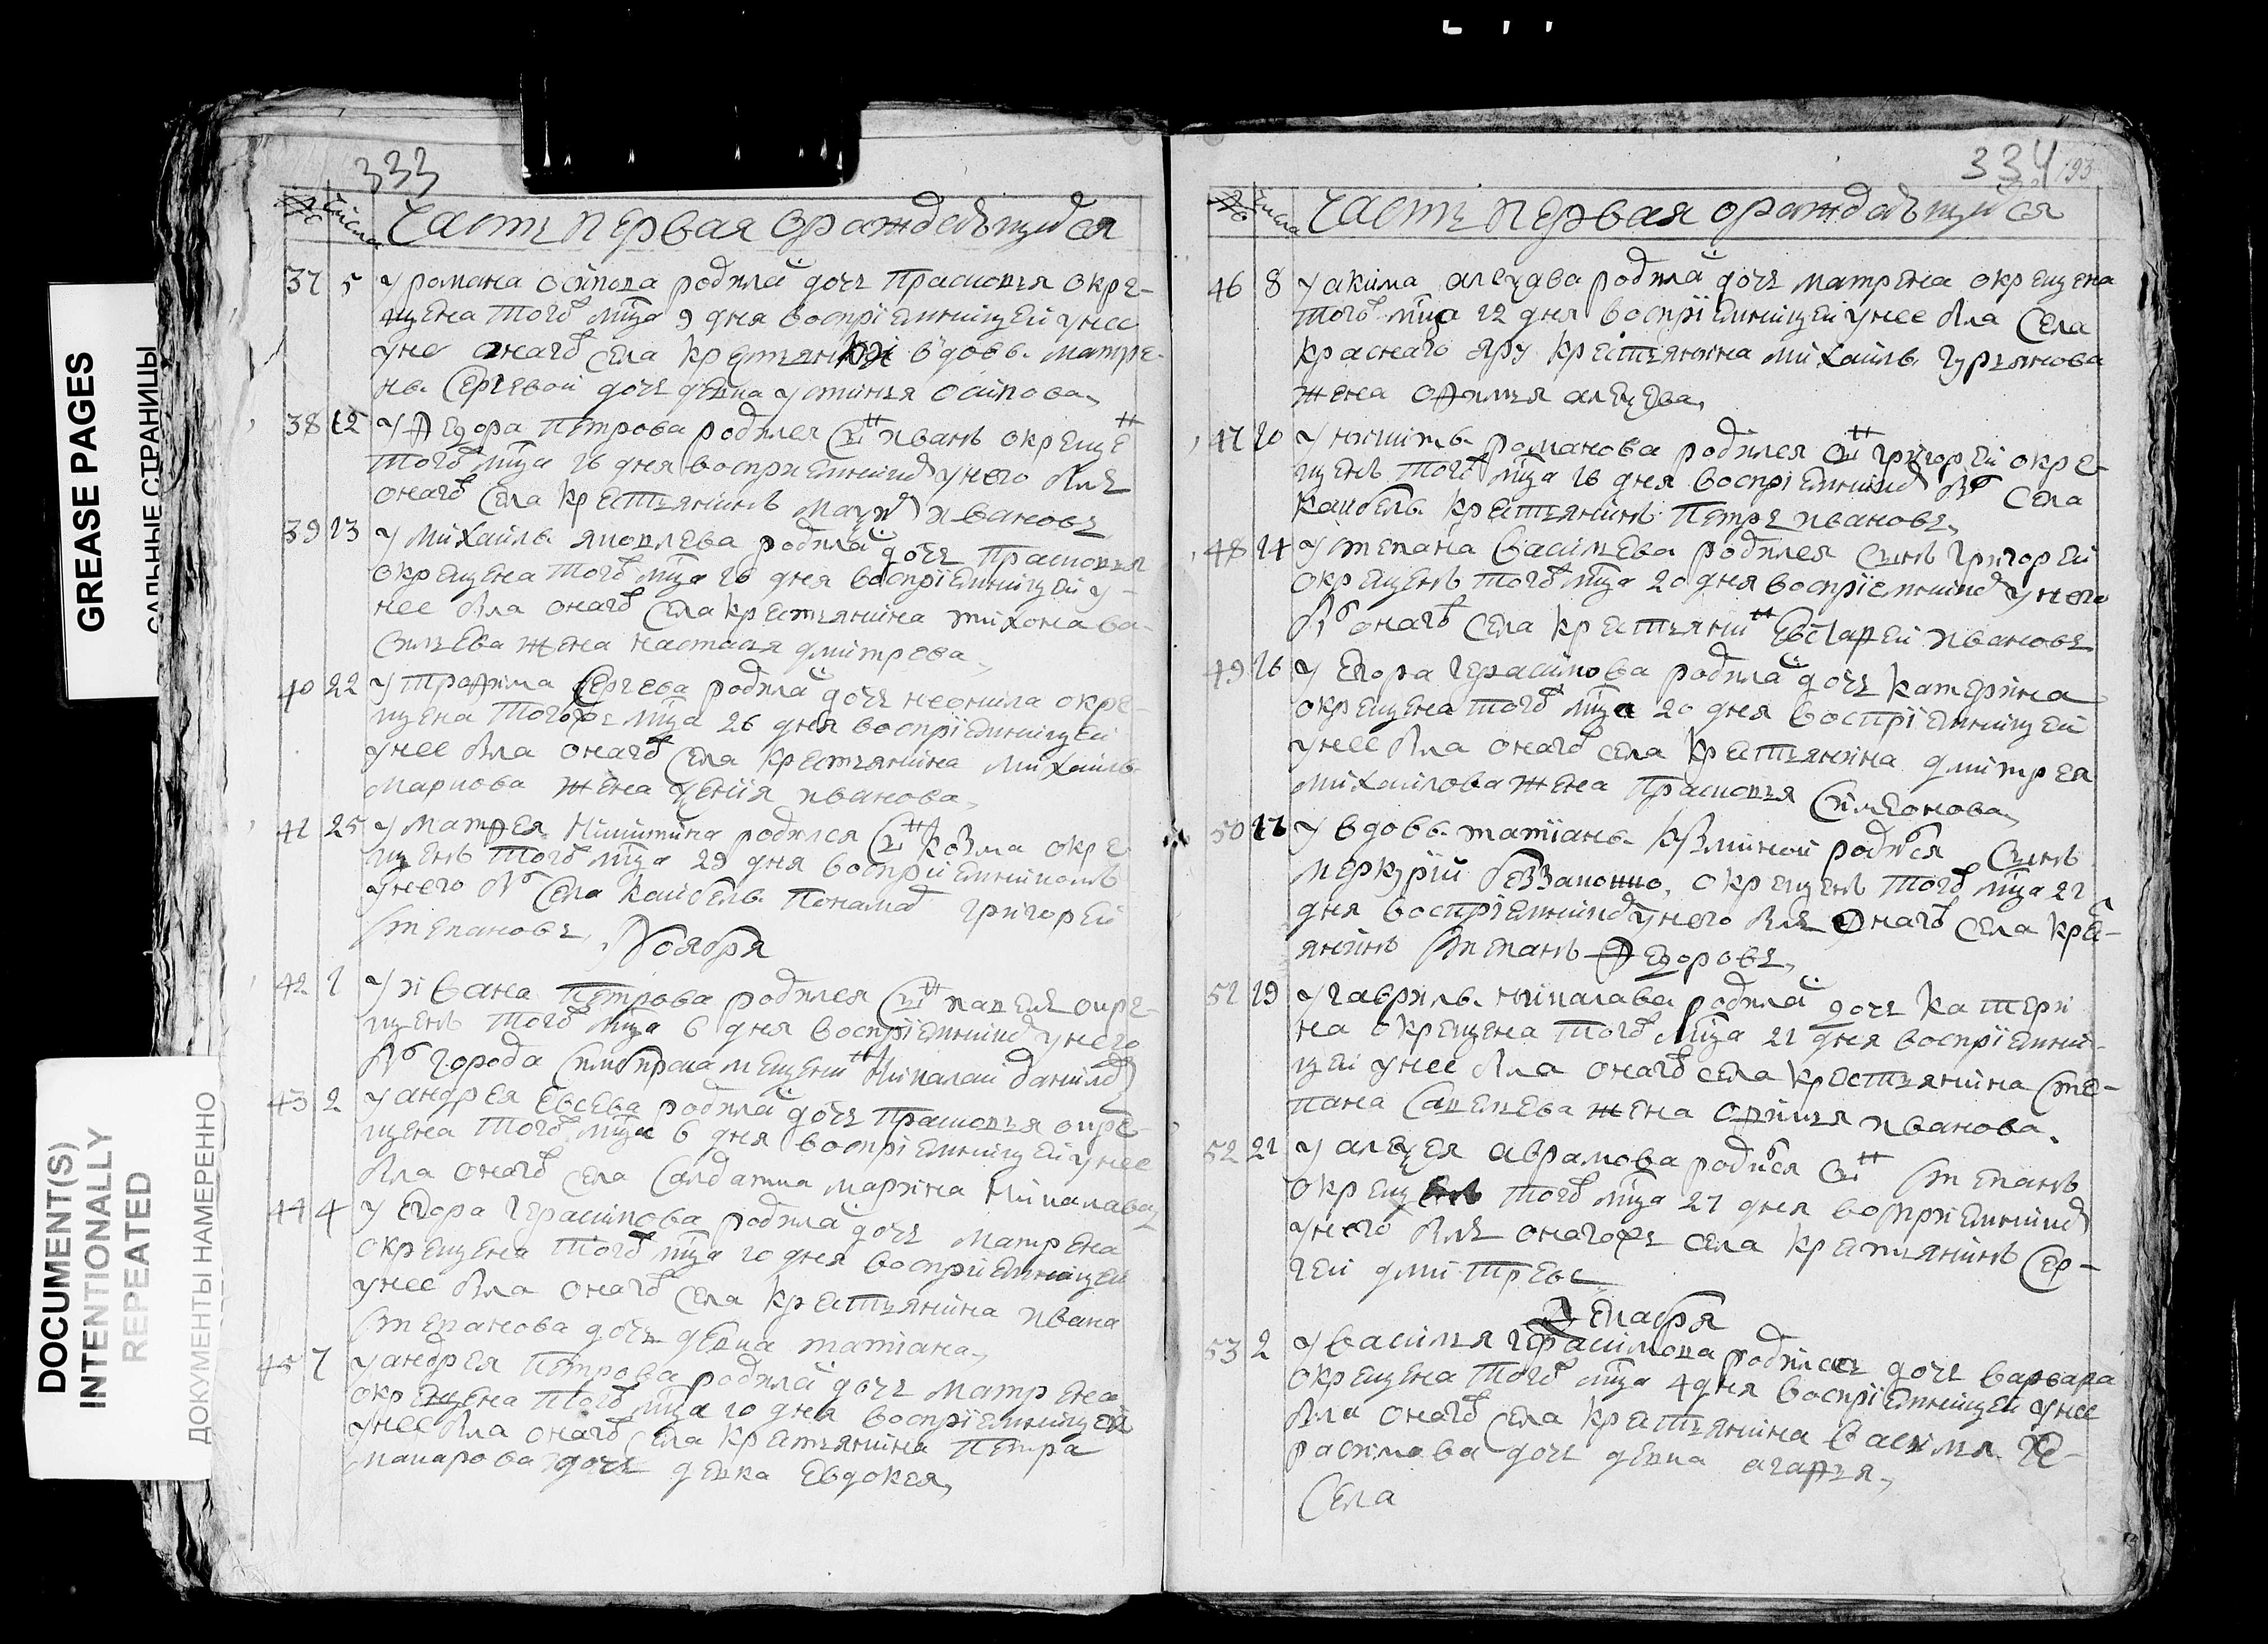 GREASE PAGES
САЛЬНЫЕ СТРАНИЦЫ
DOCUMENT(S)
INTENTIONALLY
REPEATED
ДОКУМЕНТЫ НАМЕРЕННО
333
№ числа Часть первая ораждающихся
37 5 У романа осипова родилас дочь Прасковья окре-
щена того мца 9 дня восприемницей у нее
онаго села крестьянки вдовы матре-
ны Сергѣвой дочь дѣвка устинья осипова
38 12 У Федора Петрова родился сын иванъ окрещен
того мца 16 дня восприемником у него был
онаго села крестьянинъ ивановъ
39 13 У Михаилы яковлева родилас дочь Прасковья
окрещена того мца 16 дня восприемницей у
нее была онаго села крестьянина тихона ва-
сильева жена настасья дмитрева
40 22 У трофима Сергева родилас дочь неонила окре-
щена тогоже мца 26 дня восприемницей
у нее была онаго села крестьянина Михаилы
маркова жена ѯения иванова
41 25 У матфея Никитина родился сын козма окре-
щенъ того мца 29 дня восприемникомъ
у него был села каибелы Понамар григорей
степановъ
Ноября
42 1 У ивана Петрова родился сын павелъ окре-
щенъ того мца 6 дня восприемником у него
был города симбирска мещенин Николаи данилов
43 2 У андрея Евсева родилас дочь Прасковья окре-
щена того мца 6 дня восприемницей у нее
была онаго села салдатка марина Николава
44 4 У Егора Герасимова родилас дочь матрена
окрещена того мца 10 дня восприемницей
у нее была онаго села крестьянина ивана
степанова дочь дѣвка татиана
45 7 У андрея Петрова родилас дочь матрена
окрещена того мца 10 дня восприемницей
у нее была онаго села крестьянина Петра
макарова дочь девка Евдокея
334 193
№ числа Часть первая ораждающихся
46 8 У акима алеѯава родилас дочь матрена окрещена
того мца 12 дня восприемницей у нее была села
краснаго яру крестьянина михаилы гурьянова
жена офимья алеѯева
47 10 У никиты романова родился сын григорей окре-
щенъ того мца 16 дня восприемником был села
каибелы крестьянинъ Петръ ивановъ
48 14 У степана васильева родился сынъ григорей
окрещенъ того мца 20 дня восприемником у него
был онаго села крестьянин ивановъ
49 16 У Егора Герасимова родилас дочь катерина
окрещена того мца 20 дня восприемницей
у нее была онаго села крестьянина дмитрея
михаилова жена Прасковья симеонова
50 17 У вдовы татианы кузминой родился сынъ
меркурий беззаконно окрещенъ того мца 21
дня восприемником у него был онаго села крест-
янинъ степанъ Федоровъ
51 19 У гаврилы николава родилас дочь катери
на окрещена того мца 21 дня восприемни-
цей у нее была онаго села крестьянина сте-
пана савельева жена офимья иванова
52 21 У алеѯея аврамова родился сын степанъ
окрещенъ того мца 27 дня восприемником
у него былъ онагоже села крестьянинъ сер-
гей дмитревъ
Декабря
53 2 У василья герасимова родилась дочь варвара
окрещена того мца 4 дня восприемницей у нее
была онаго села крестьянина василья ге-
расимава дочь дѣвка агафья
села